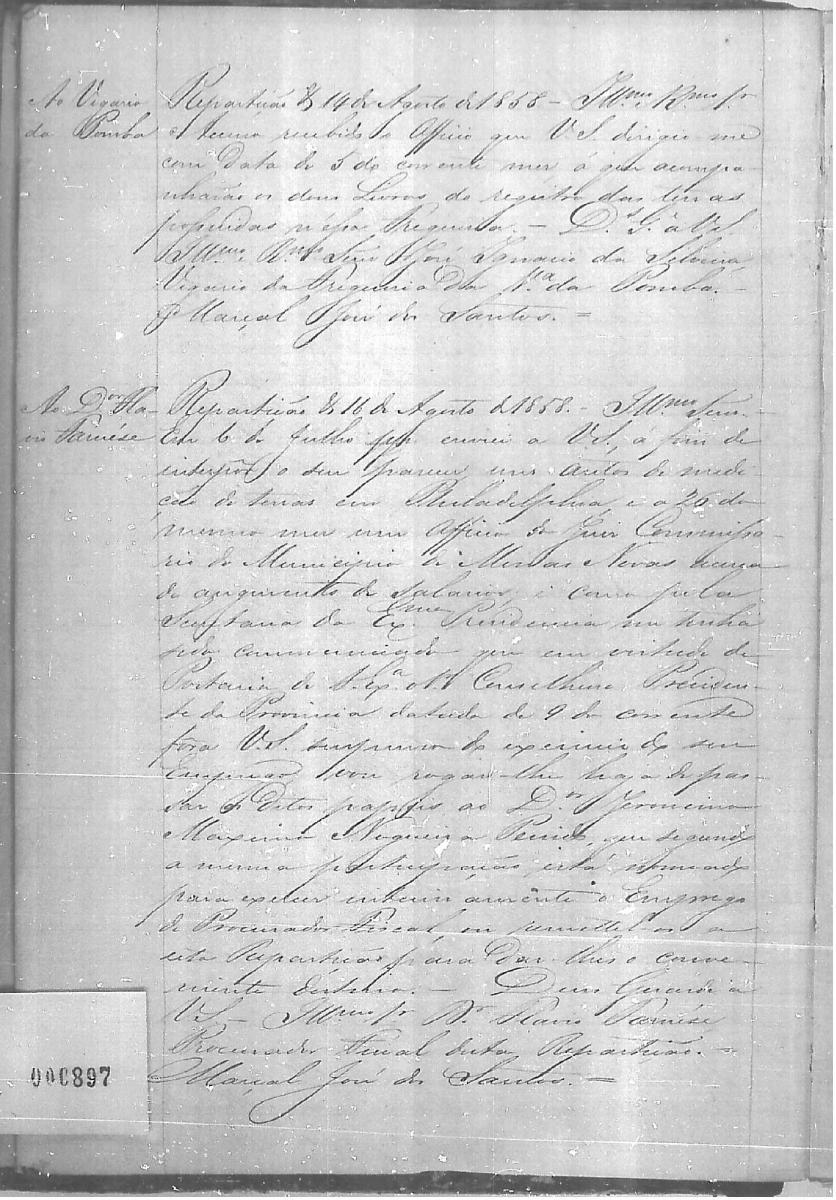 Ao Vigario
da Pomba
Repartição 14 de Agosto de 1858 - Illmo. Rmo. Sr.
Accuso recebido o Officio que V.S. dirigio-me
com data de 5 do corrente mez á que acompa-
nharão os dous Livros do registro das terras
possuidas n'essa Freguesia. - Ds. G. a V.S.
Illmo. Rmo. Senr. José Ignacio da Silveira,
Vigario da Freguesia da Va. da Pomba. -
Marçal José dos Santos. =
Ao Dor. Fla-
vio Farnése
Repartição 16 de Agosto de 1858. - Illmo. Senr. -
Em 6 de Julho pp. enviei a V.S., a fim de
interpôr o seu parecer uns autos de medi-
ção de terras em Philadelphia, e a 20 do
mesmo mez um Officio do Juiz Commissa-
rio do Municipio de Minas Novas acerca
de augmento de salarios, e como pela
Secretaria da Exma. Presidencia me tenha
sido communicado que em virtude de
Portaria de S. Exa. o Sr. Conselheiro Presiden-
te da Provincia datada de 9 do corrente
fora V.S. suspenso do exercicio do seu
Emprego, vou rogar-lhe haja de pas-
sar os ditos papeis ao Dor. Jeronimo
Maximo Nogueira Penido, que segundo
a mesma participação está nomeado
para exercer interinamente o Emprego
de Procurador Fiscal, ou remettel-os a
esta Repartição para dar-lhes o conve-
niente destino. - Deus Guarde a
V.S. - Illmo. Sr. Dr. Flavio Farnese
Procurador Fiscal desta Repartição. -
Marçal José dos Santos. =
000897